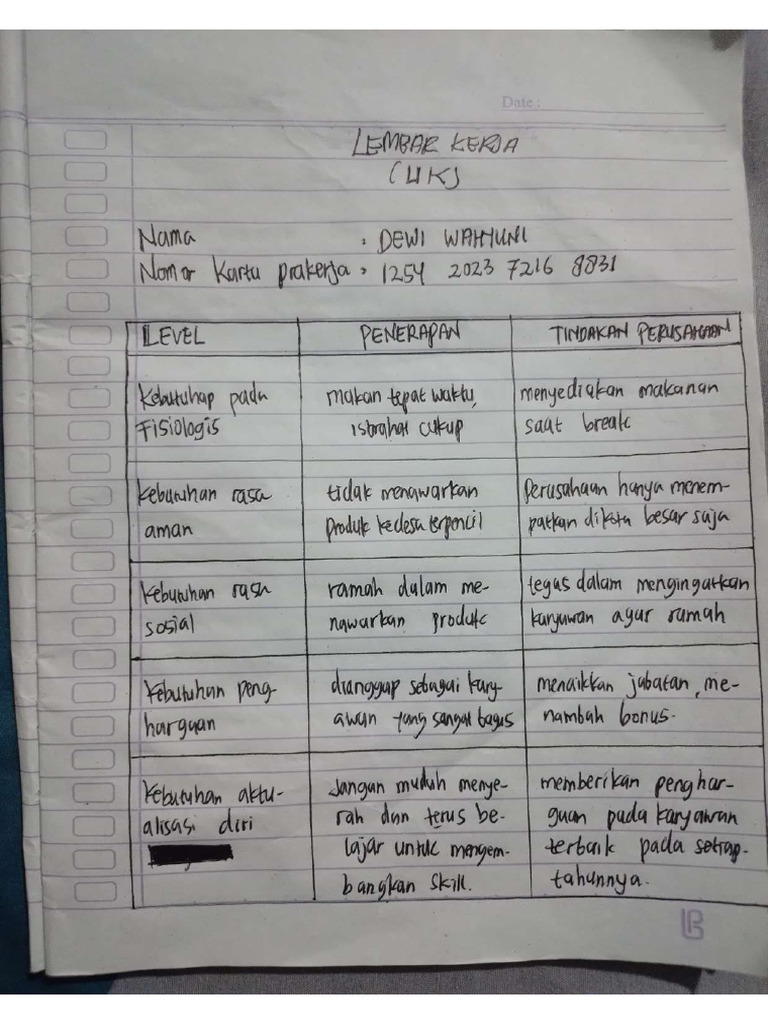 Date :
LEMBAR KERJA
(LK)
Nama : DEWI WAHYUNI
Nomor Kartu prakerja : 1254 2023 7216 8831
LEVEL PENERAPAN TINDAKAN PERUSAHAAN
Kebutuhap pada
Fisiologis
makan tepat waktu,
istrahat cukup
menyediakan makanan
saat break
Kebutuhan rasa
aman
tidak menawarkan
produk kedesa terpencil
Perusahaan hanya menem-
patkan dikota besar saja
Kebutuhan rasa
sosial
ramah dalam me-
nawarkan produk
tegas dalam mengingatkan
karyawan agar ramah
Kebutuhan peng-
hargaan
dianggap sebagai kary-
awan yang sangat bagus
menaikkan jabatan, me-
nambah bonus.
Kebutuhan aktu-
alisasi diri
Jangan mudah menye-
rah dan terus be-
lajar untuk mengem-
bangkan skill.
memberikan penghar-
gaan pada karyawan
terbaik pada setiap
tahunnya.